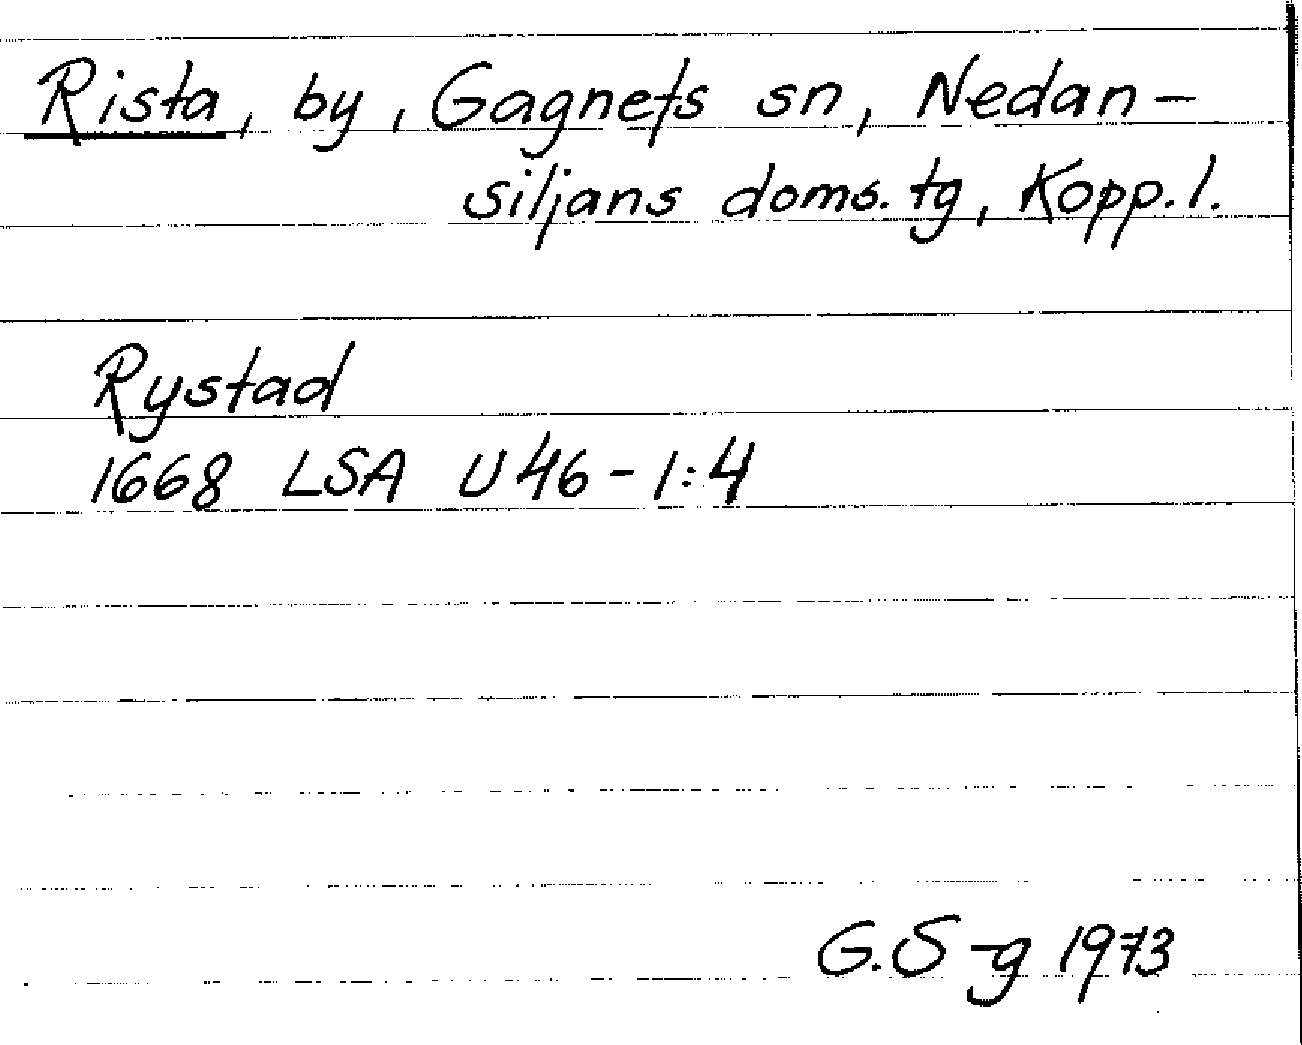 Rista, by, Gagnefs sn, Nedan-
siljans doms. tg, Kopp. l.
Rystad
1668 LSA U 46 - 1:4
G. S-g 1973